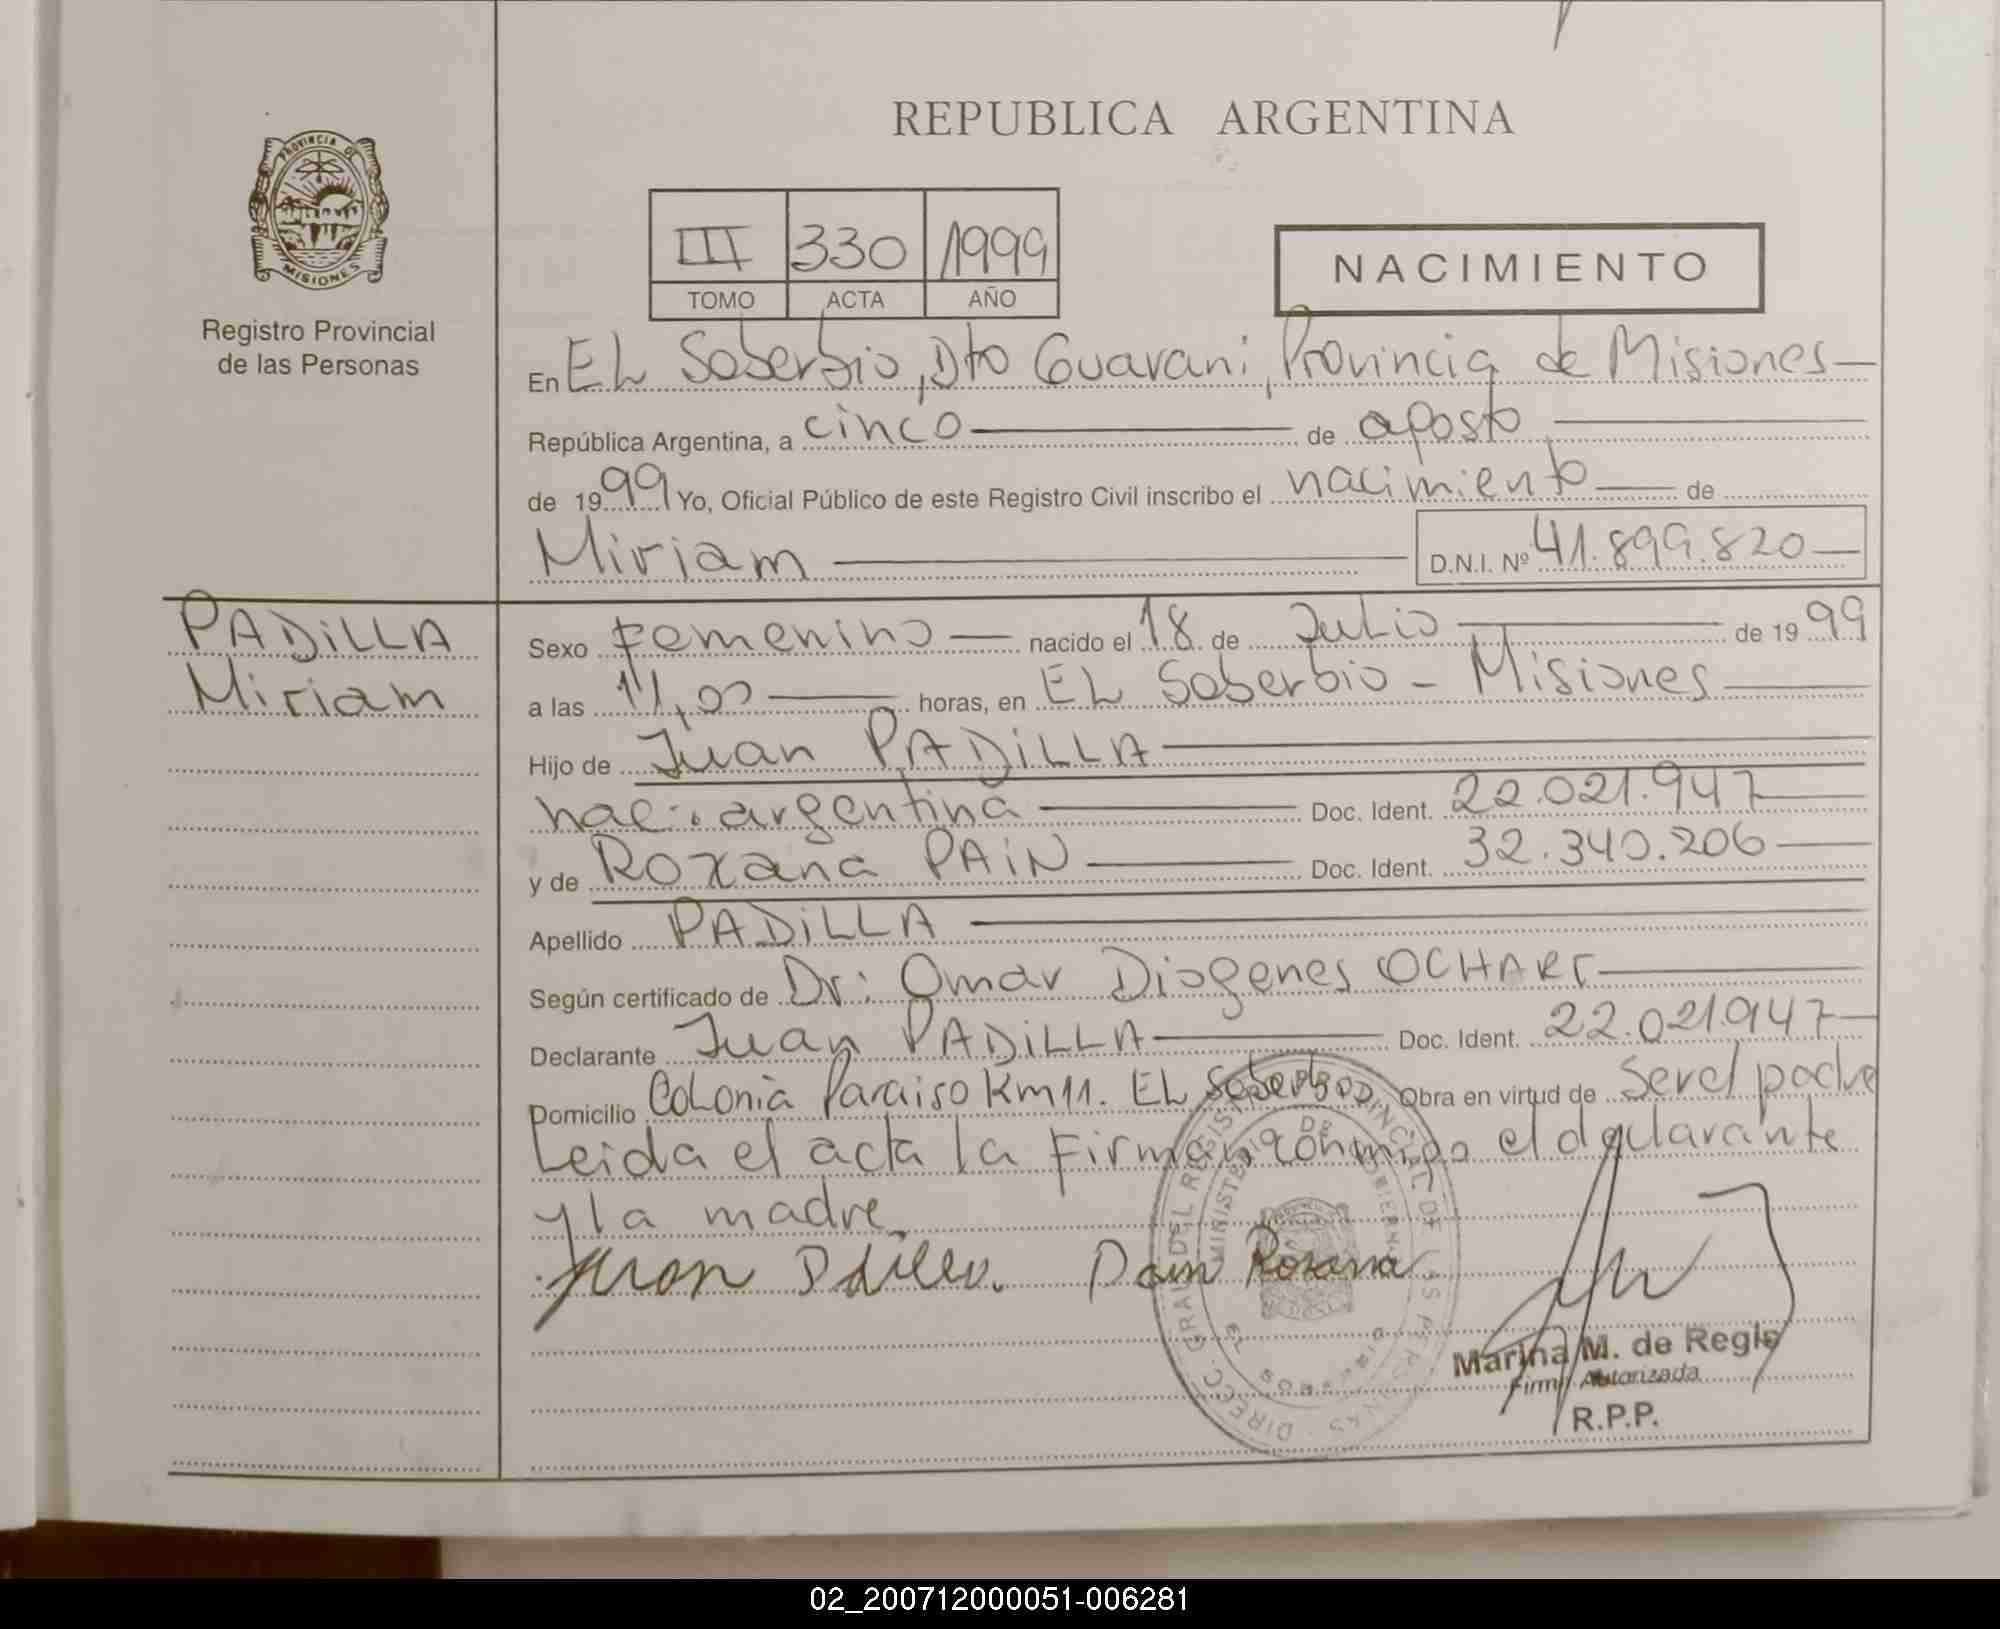 REPUBLICA ARGENTINA
PROVINCIA DE
MISIONES
Registro Provincial
de las Personas
III 330 1999
TOMO ACTA AÑO
NACIMIENTO
En EL Soberbio, Dto Guarani, Provincia de Misiones
República Argentina, a cinco de agosto
de 1999 Yo, Oficial Público de este Registro Civil inscribo el nacimiento de
Miriam D.N.I. Nº 41.899.820
PADiLLA
Miriam
Sexo Femenino nacido el 18 de Julio de 1999
a las 11,00 horas, en EL Soberbio - Misiones
Hijo de Juan PADiLLA
nac: argentina Doc. Ident. 22.021.947
y de Roxana PAiN Doc. Ident. 32.340.206
Apellido PADiLLA
Según certificado de Dr: Omar Diogenes
Declarante Juan PADiLLA Doc. Ident. 22.021.947
Domicilio Colonia Paraiso Km 11. EL Soberbio, Obra en virtud de Ser el padre
Leida el acta la Firman conmigo el declarante
y la madre.
Juan Pain Roxana
DIRECC. GRAL DEL REGISTRO PROVINCIAL DE LAS PERSONAS
MINISTERIO DE GOBIERNO
Marina M. de Regis
Firma Autorizada
R.P.P.
02_200712000051-006281